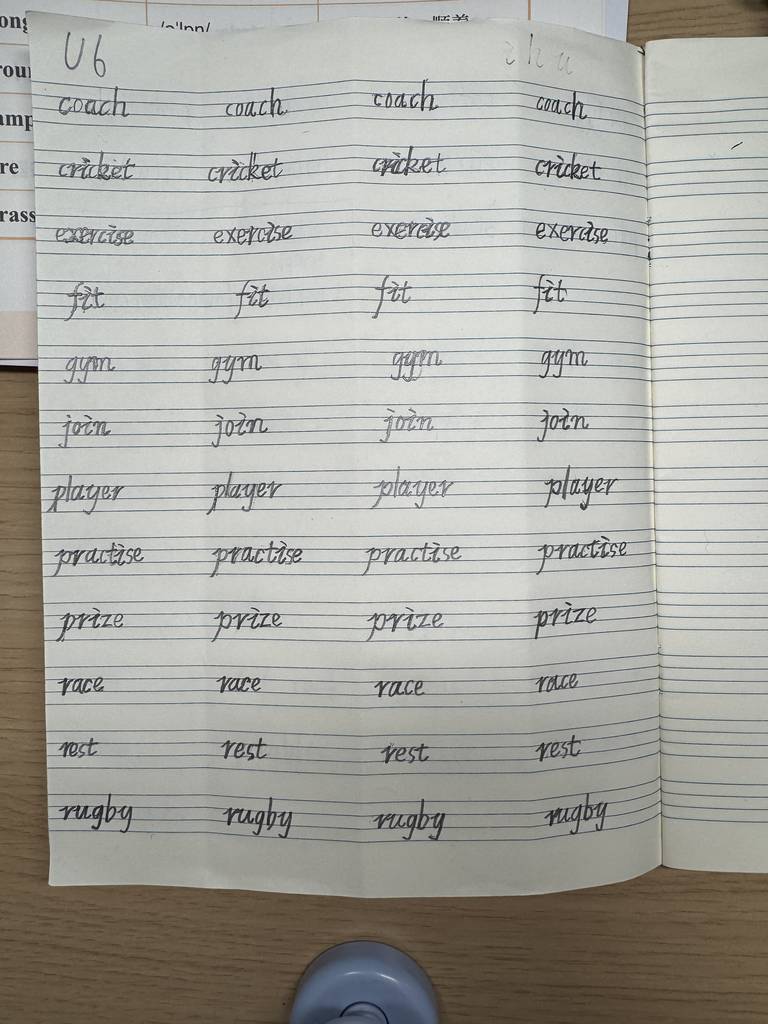 /ə'lɒŋ/
U6 zhu
coach coach coach coach
cricket cricket cricket cricket
exercise exercise exercise exercise
fit fit fit fit
gym gym gym gym
join join join join
player player player player
practise practise practise practise
prize prize prize prize
race race race race
rest rest rest rest
rugby rugby rugby rugby